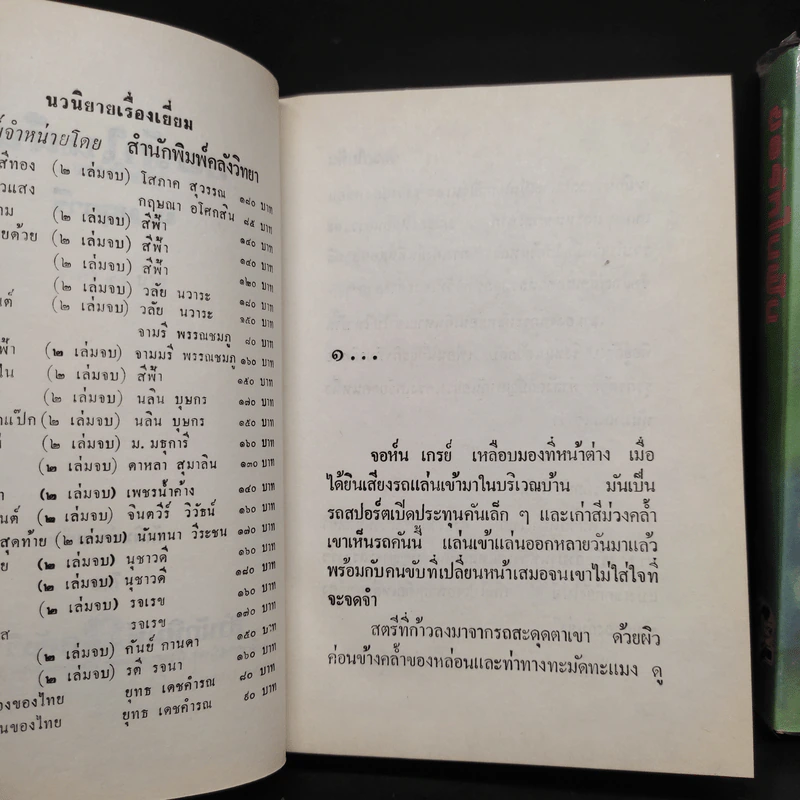 นวนิยายเรื่องเยี่ยม
จำหน่ายโดย สำนักพิมพ์คลังวิทยา
สีทอง (๒ เล่มจบ) โสภาค สุวรรณ ๑๘๐ บาท
วแสง กฤษณา อโศกสิน ๘๕ บาท
าม (๒ เล่มจบ) สีฟ้า ๑๔๐ บาท
ยด้วย (๒ เล่มจบ) สีฟ้า ๑๔๐ บาท
(๒ เล่มจบ) สีฟ้า ๑๒๐ บาท
(๒ เล่มจบ) วลัย นวาระ ๑๘๐ บาท
สต์ (๒ เล่มจบ) วลัย นวาระ ๑๕๐ บาท
จามรี พรรณชมภู ๘๐ บาท
ฟ้า (๒ เล่มจบ) จามมรี พรรณชมภู ๑๖๐ บาท
ใน (๒ เล่มจบ) สีฟ้า ๑๕๐ บาท
(๒ เล่มจบ) นลิน บุษกร ๑๗๐ บาท
าแป๊ก (๒ เล่มจบ) นลิน บุษกร ๑๕๐ บาท
(๒ เล่มจบ) ม. มธุการี ๑๖๐ บาท
(๒ เล่มจบ) ดาหลา สุมาลิน ๑๓๐ บาท
า (๒ เล่มจบ) เพชรน้ำค้าง ๑๔๐ บาท
นต์ (๒ เล่มจบ) จินตวีร์ วิวัธน์ ๑๖๐ บาท
สุดท้าย (๒ เล่มจบ) นันทนา วีระชน ๑๗๐ บาท
ย (๒ เล่มจบ) นุชาวดี ๑๖๐ บาท
(๒ เล่มจบ) นุชาวดี ๑๘๐ บาท
(๒ เล่มจบ) รจเรข ๑๖๐ บาท
ส รจเรข ๑๗๐ บาท
(๒ เล่มจบ) กันย์ กานดา ๑๕๐ บาท
(๒ เล่มจบ) รตี รจนา ๑๖๐ บาท
องของไทย ยุทธ เดชคำรณ ๘๐ บาท
นของไทย ยุทธ เดชคำรณ ๙๐ บาท
๑...
จอห์น เกรย์ เหลือบมองที่หน้าต่าง เมื่อ
ได้ยินเสียงรถแล่นเข้ามาในบริเวณบ้าน มันเป็น
รถสปอร์ตเปิดประทุนคันเล็ก ๆ และเก่าสีม่วงคล้ำ
เขาเห็นรถคันนี้ แล่นเข้าแล่นออกหลายวันมาแล้ว
พร้อมกับคนขับที่เปลี่ยนหน้าเสมอจนเขาไม่ใส่ใจที่
จะจดจำ
สตรีที่ก้าวลงมาจากรถสะดุดตาเขา ด้วยผิว
ค่อนข้างคล้ำของหล่อนและท่าทางทะมัดทะแมง ดู